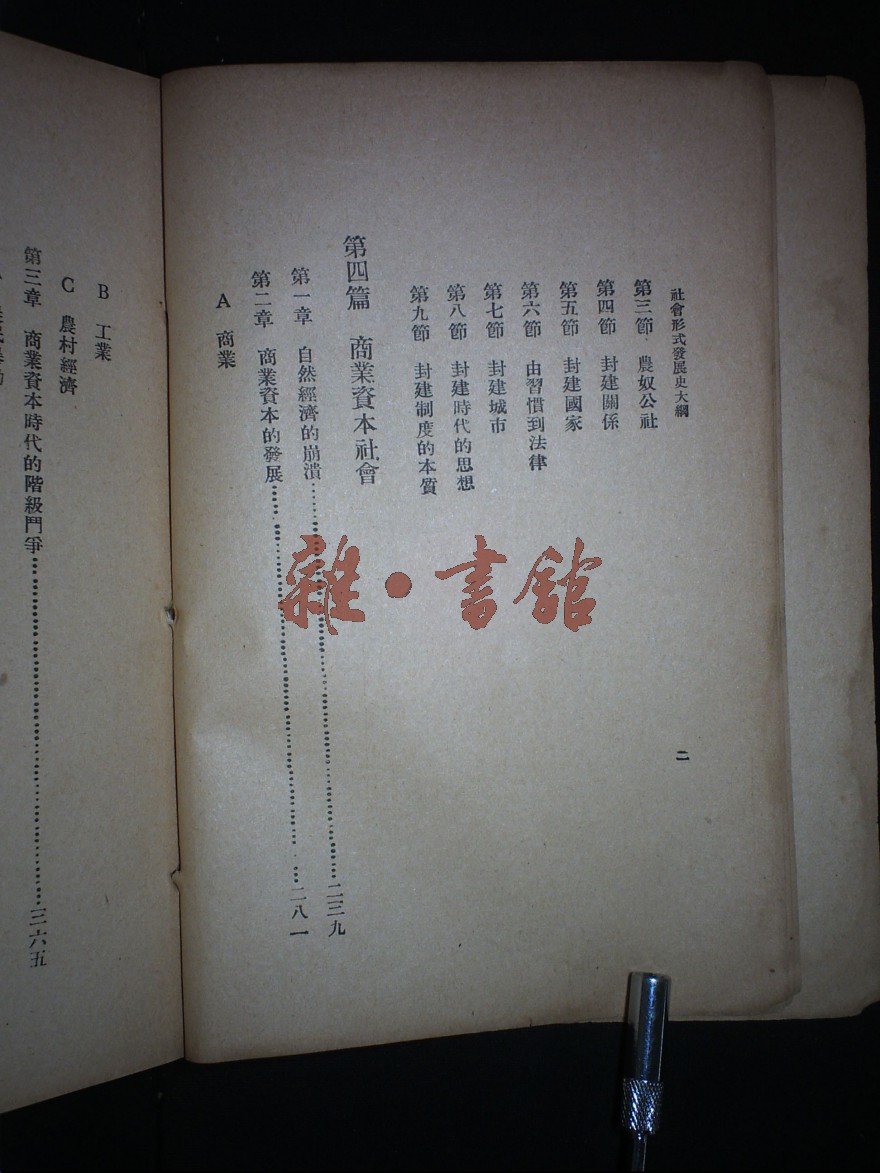 社會形式發展史大綱
二
第三節 農奴公社
第四節 封建關係
第五節 封建國家
第六節 由習慣到法律
第七節 封建城市
第八節 封建時代的思想
第九節 封建制度的本質
第四篇 商業資本社會
第一章 自然經濟的崩潰……二三九
第二章 商業資本的發展……二八一
A 商業
B 工業
C 農村經濟
第三章 商業資本時代的階級鬥爭……三六五
雜·書館